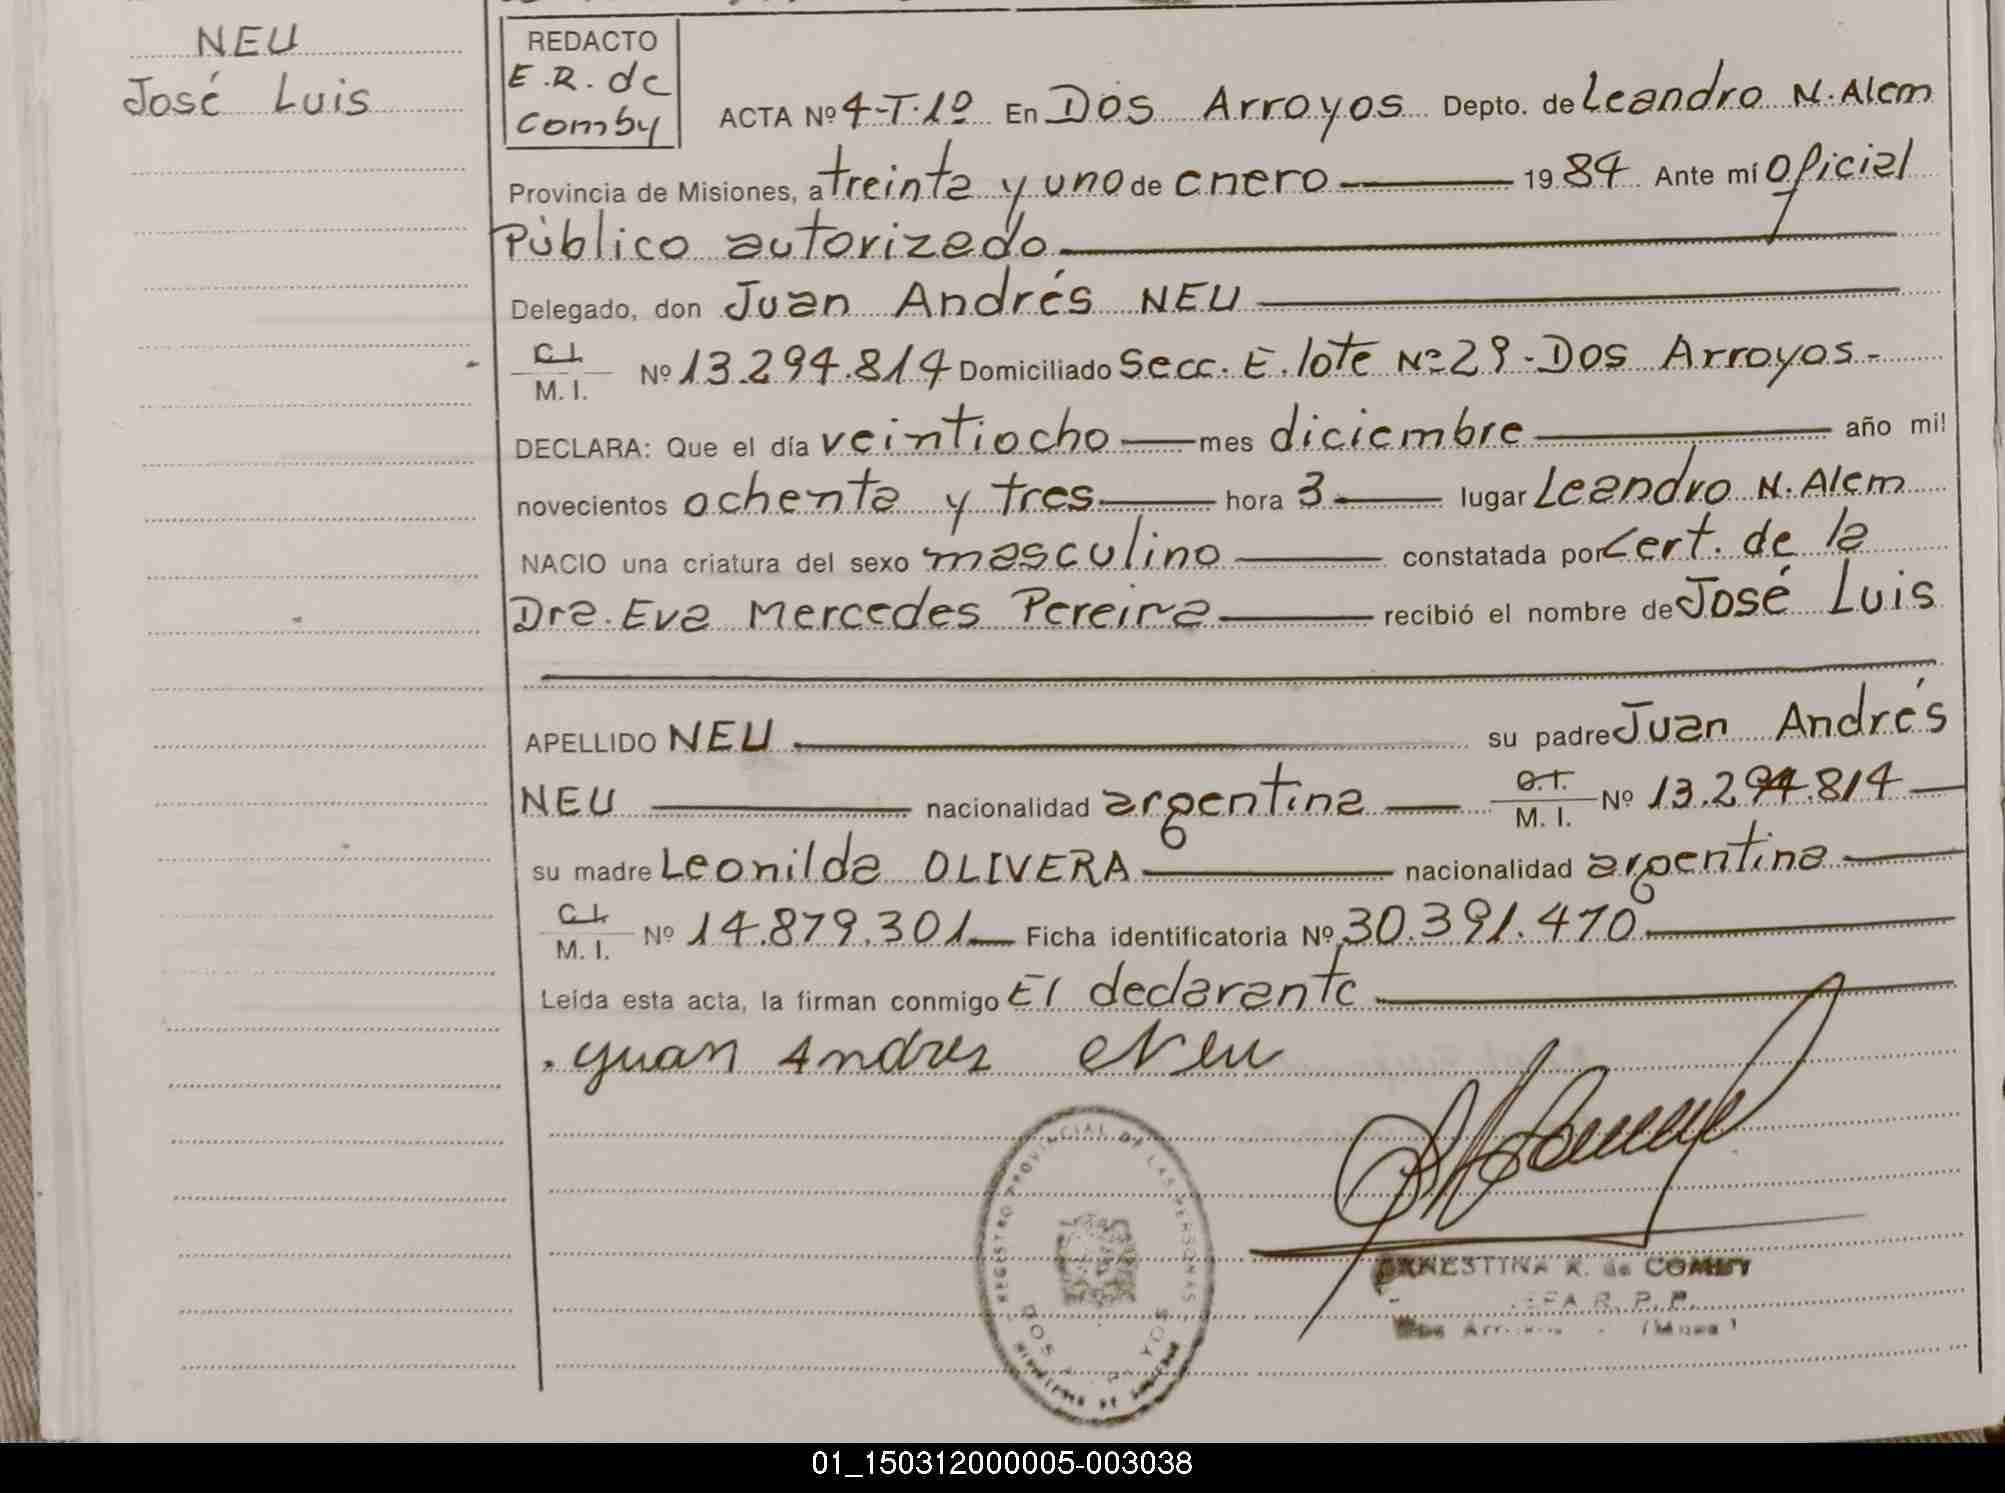 NEU
José Luis
REDACTO
E.R. de
Comby
ACTA Nº 4-T.1º En Dos Arroyos Depto. de Leandro N. Alem
Provincia de Misiones, a treinta y uno de enero 1984 Ante mí Oficial
Público autorizado
Delegado, don Juan Andrés NEU
C.I.
M. I. Nº 13.294.814 Domiciliado Secc. E. lote Nº 29 - Dos Arroyos -
DECLARA: Que el día veintiocho mes diciembre año mil
novecientos ochenta y tres hora 3 lugar Leandro N. Alem
NACIO una criatura del sexo masculino constatada por Cert. de la
Dra. Eva Mercedes Pereira recibió el nombre de José Luis
APELLIDO NEU su padre Juan Andrés
NEU nacionalidad argentina M. I. Nº 13.294.814
su madre Leonilda OLIVERA nacionalidad argentina
C.I.
M. I. Nº 14.879.301 Ficha identificatoria Nº 30.391.470
Leída esta acta, la firman conmigo El declarante
Juan Andres Neu
REGISTRO PROVINCIAL DE LAS PERSONAS
ERNESTINA R. de COMBY
R. P. P.
01_150312000005-003038